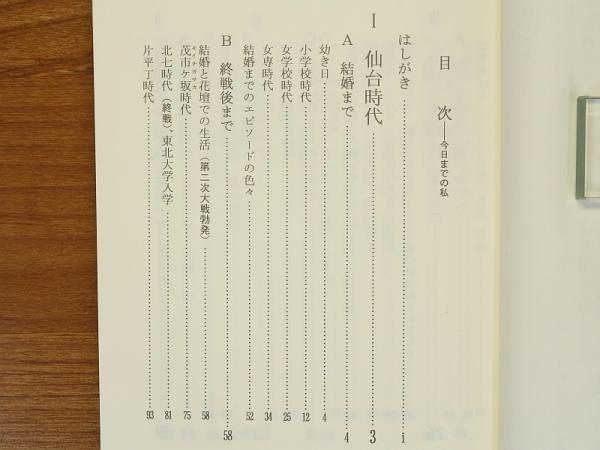 目次──今日までの私
はしがき……………………i
I 仙台時代……………………3
A 結婚まで……………………4
幼き日……………………4
小学校時代……………………12
女学校時代……………………25
女専時代……………………34
結婚までのエピソードの色々……………………52
B 終戦後まで……………………58
結婚と花壇での生活（第二次大戦勃発）……………………58
茂市ケ坂時代……………………75
北七時代（終戦）、東北大学入学……………………81
片平丁時代……………………93